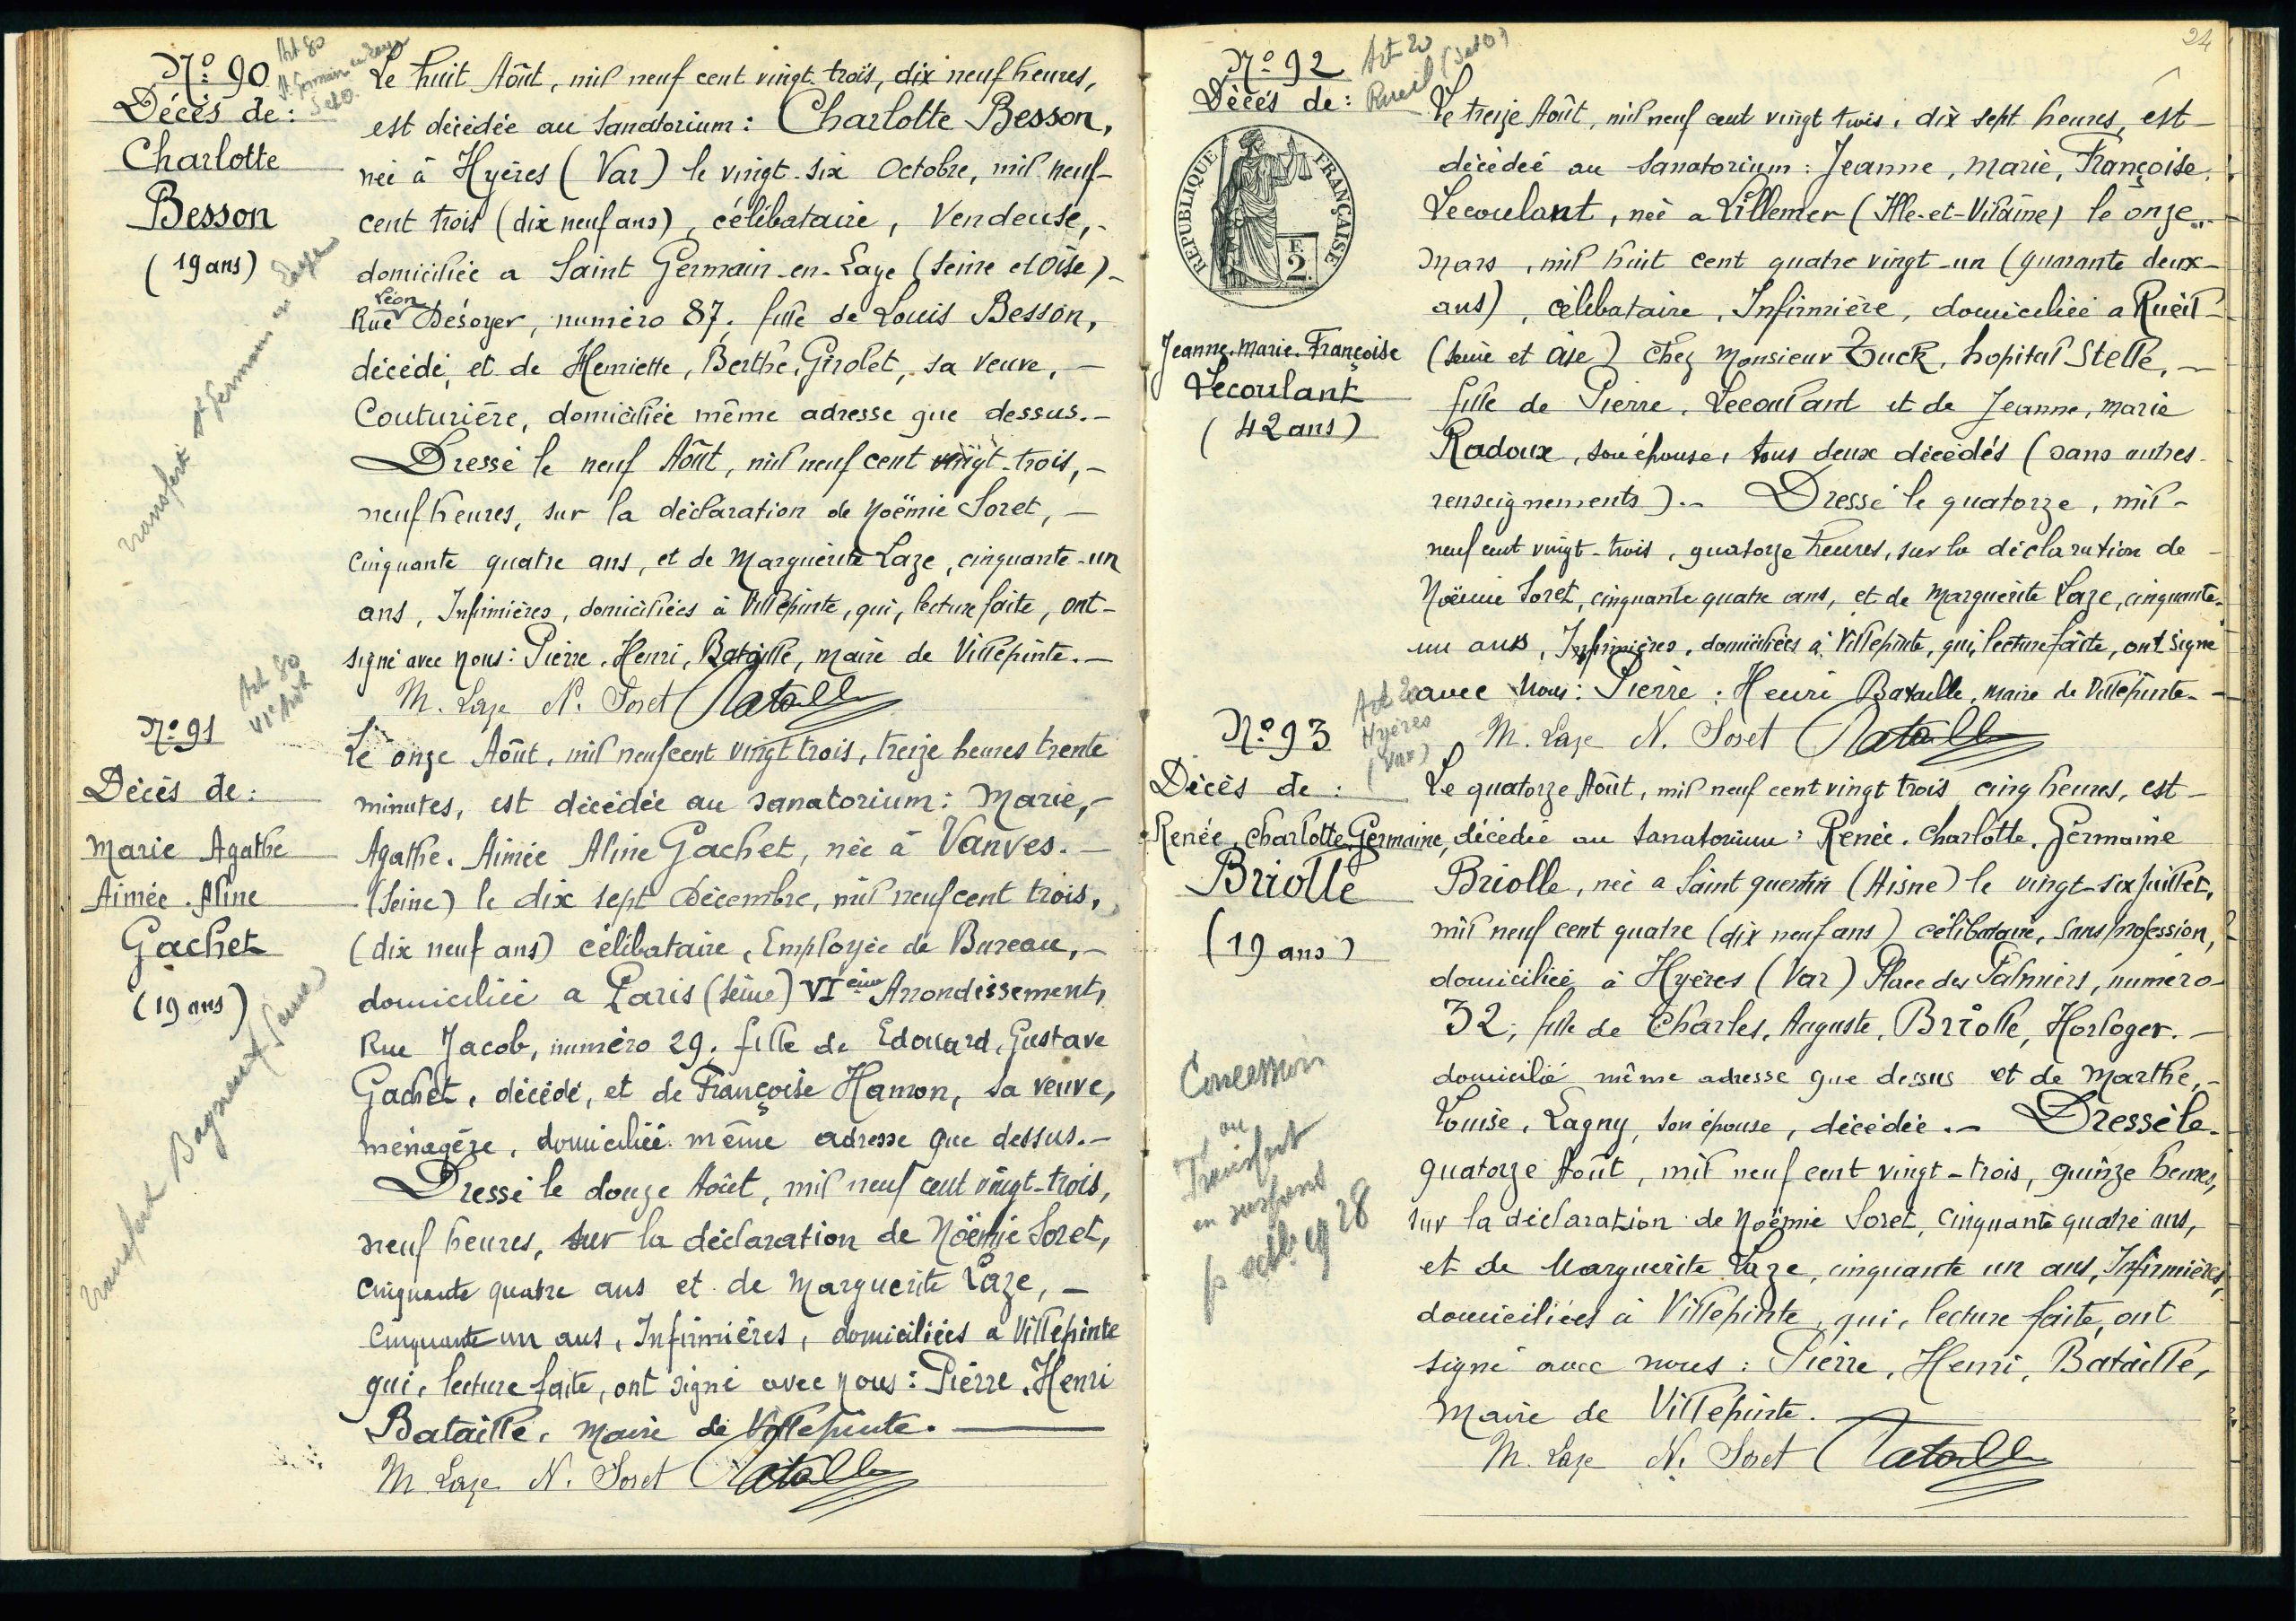 N° 90
Art 80
St Germain en Laye
S et O.
Décès de :
Charlotte
Besson
(19 ans)
transfert St Germain en Laye
Le huit Août, mil neuf cent vingt-trois, dix neuf heures,
est décédée au Sanatorium : Charlotte Besson,
née à Hyères (Var) le vingt-six Octobre, mil neuf-
cent trois (dix neuf ans), célibataire, Vendeuse,-
domiciliée a Saint Germain-en-Laye (Seine et Oise)-
Rue Léon Désoyer, numéro 87. fille de Louis Besson,
décédé, et de Henriette, Berthe, Girolet, sa veuve, -
Couturière, domiciliée même adresse que dessus.-
Dressé le neuf Août, mil neuf cent vingt-trois, -
neuf heures, sur la déclaration de Noëmie Soret, -
cinquante quatre ans, et de Marguerite Laze, cinquante-un
ans, Infirmières, domiciliées à Villepinte, qui, lecture faite, ont-
signé avec nous : Pierre, Henri, Bataille, maire de Villepinte.-
M. Laze N. Soret Bataille
N° 91
Art 80
VIe Arrt
Décès de :
Marie Agathe
Aimée. Aline
Gachet
(19 ans)
transfert Bagneux (Seine)
Le onze Août, mil neuf cent vingt trois, treize heures trente
minutes, est décédée au sanatorium : Marie,-
Agathe. Aimée Aline Gachet, née à Vanves. -
(Seine) le dix sept Décembre, mil neuf cent trois,
(dix neuf ans) célibataire, Employée de Bureau,-
domiciliée a Paris (Seine) VIème Arrondissement,
Rue Jacob, numéro 29. fille de Edouard, Gustave
Gachet, décédé, et de Françoise Hamon, sa veuve,
ménagère, domiciliée même adresse que dessus.-
Dressé le douze Août, mil neuf cent vingt-trois,
neuf heures, sur la déclaration de Noëmie Soret,
cinquante quatre ans et de Marguerite Laze, -
cinquante un ans, Infirmières, domiciliées a Villepinte
qui, lecture faite, ont signé avec nous : Pierre. Henri
Bataille, maire de Villepinte.
M. Laze N. Soret Bataille
24
N° 92
Art 20
Rueil (S et O)
Décés de :
REPUBLIQUE FRANÇAISE
F.
2.
Jeanne. Marie. Françoise
Lecoulant
(42 ans)
Le treize Août, mil neuf cent vingt trois, dix sept heures, est-
décédée au Sanatorium : Jeanne, Marie, Françoise,
Lecoulant, née a Lillemer (Ille-et-Vilaine) le onze
Mars, mil huit cent quatre vingt-un (quarante deux-
ans), célibataire, Infirmière, domiciliée a Rueil-
(Seine et Oise) Chez Monsieur Tuck, hopital Stelle, -
fille de Pierre, Lecoulant et de Jeanne, Marie
Radoux, son épouse, tous deux décédés (sans autres-
renseignements).- Dressé le quatorze, mil-
neuf cent vingt-trois, quatorze heures, sur la déclaration de -
Noëmie Soret, cinquante quatre ans, et de Marguerite Laze, cinquante-
un ans, Infirmières, domiciliées à Villepinte, qui, lecture faite, ont signé
avec nous : Pierre. Henri Bataille, maire de Villepinte-
M. Laze N. Soret Bataille
N° 93
Art 20
Hyères
(Var)
Décès de :
Renée, Charlotte. Germaine,
Briolle
(19 ans)
Concession
ou
Transfert
en suspens
Le quatorze Août, mil neuf cent vingt trois cinq heures, est-
décédée au Sanatorium : Renée. Charlotte. Germaine
Briolle, née a Saint quentin (Aisne) le vingt-six juillet,
mil neuf cent quatre (dix neuf ans) célibataire, Sans profession,
domiciliée à Hyères (Var) Place des Palmiers, numéro-
32; fille de Charles, Auguste, Briolle, Horloger. -
domicilié même adresse que dessus et de Marthe,-
Louise, Lagny, son épouse, décédée.- Dressé le-
quatorze Août, mil neuf cent vingt-trois, quinze heures,
sur la déclaration de Noëmie Soret, cinquante quatre ans,
et de Marguerite Laze, cinquante un ans, Infirmières,
domiciliées à Villepinte, qui, lecture faite, ont
signé avec nous : Pierre, Henri, Bataille,
Maire de Villepinte.
M. Laze N. Soret Bataille